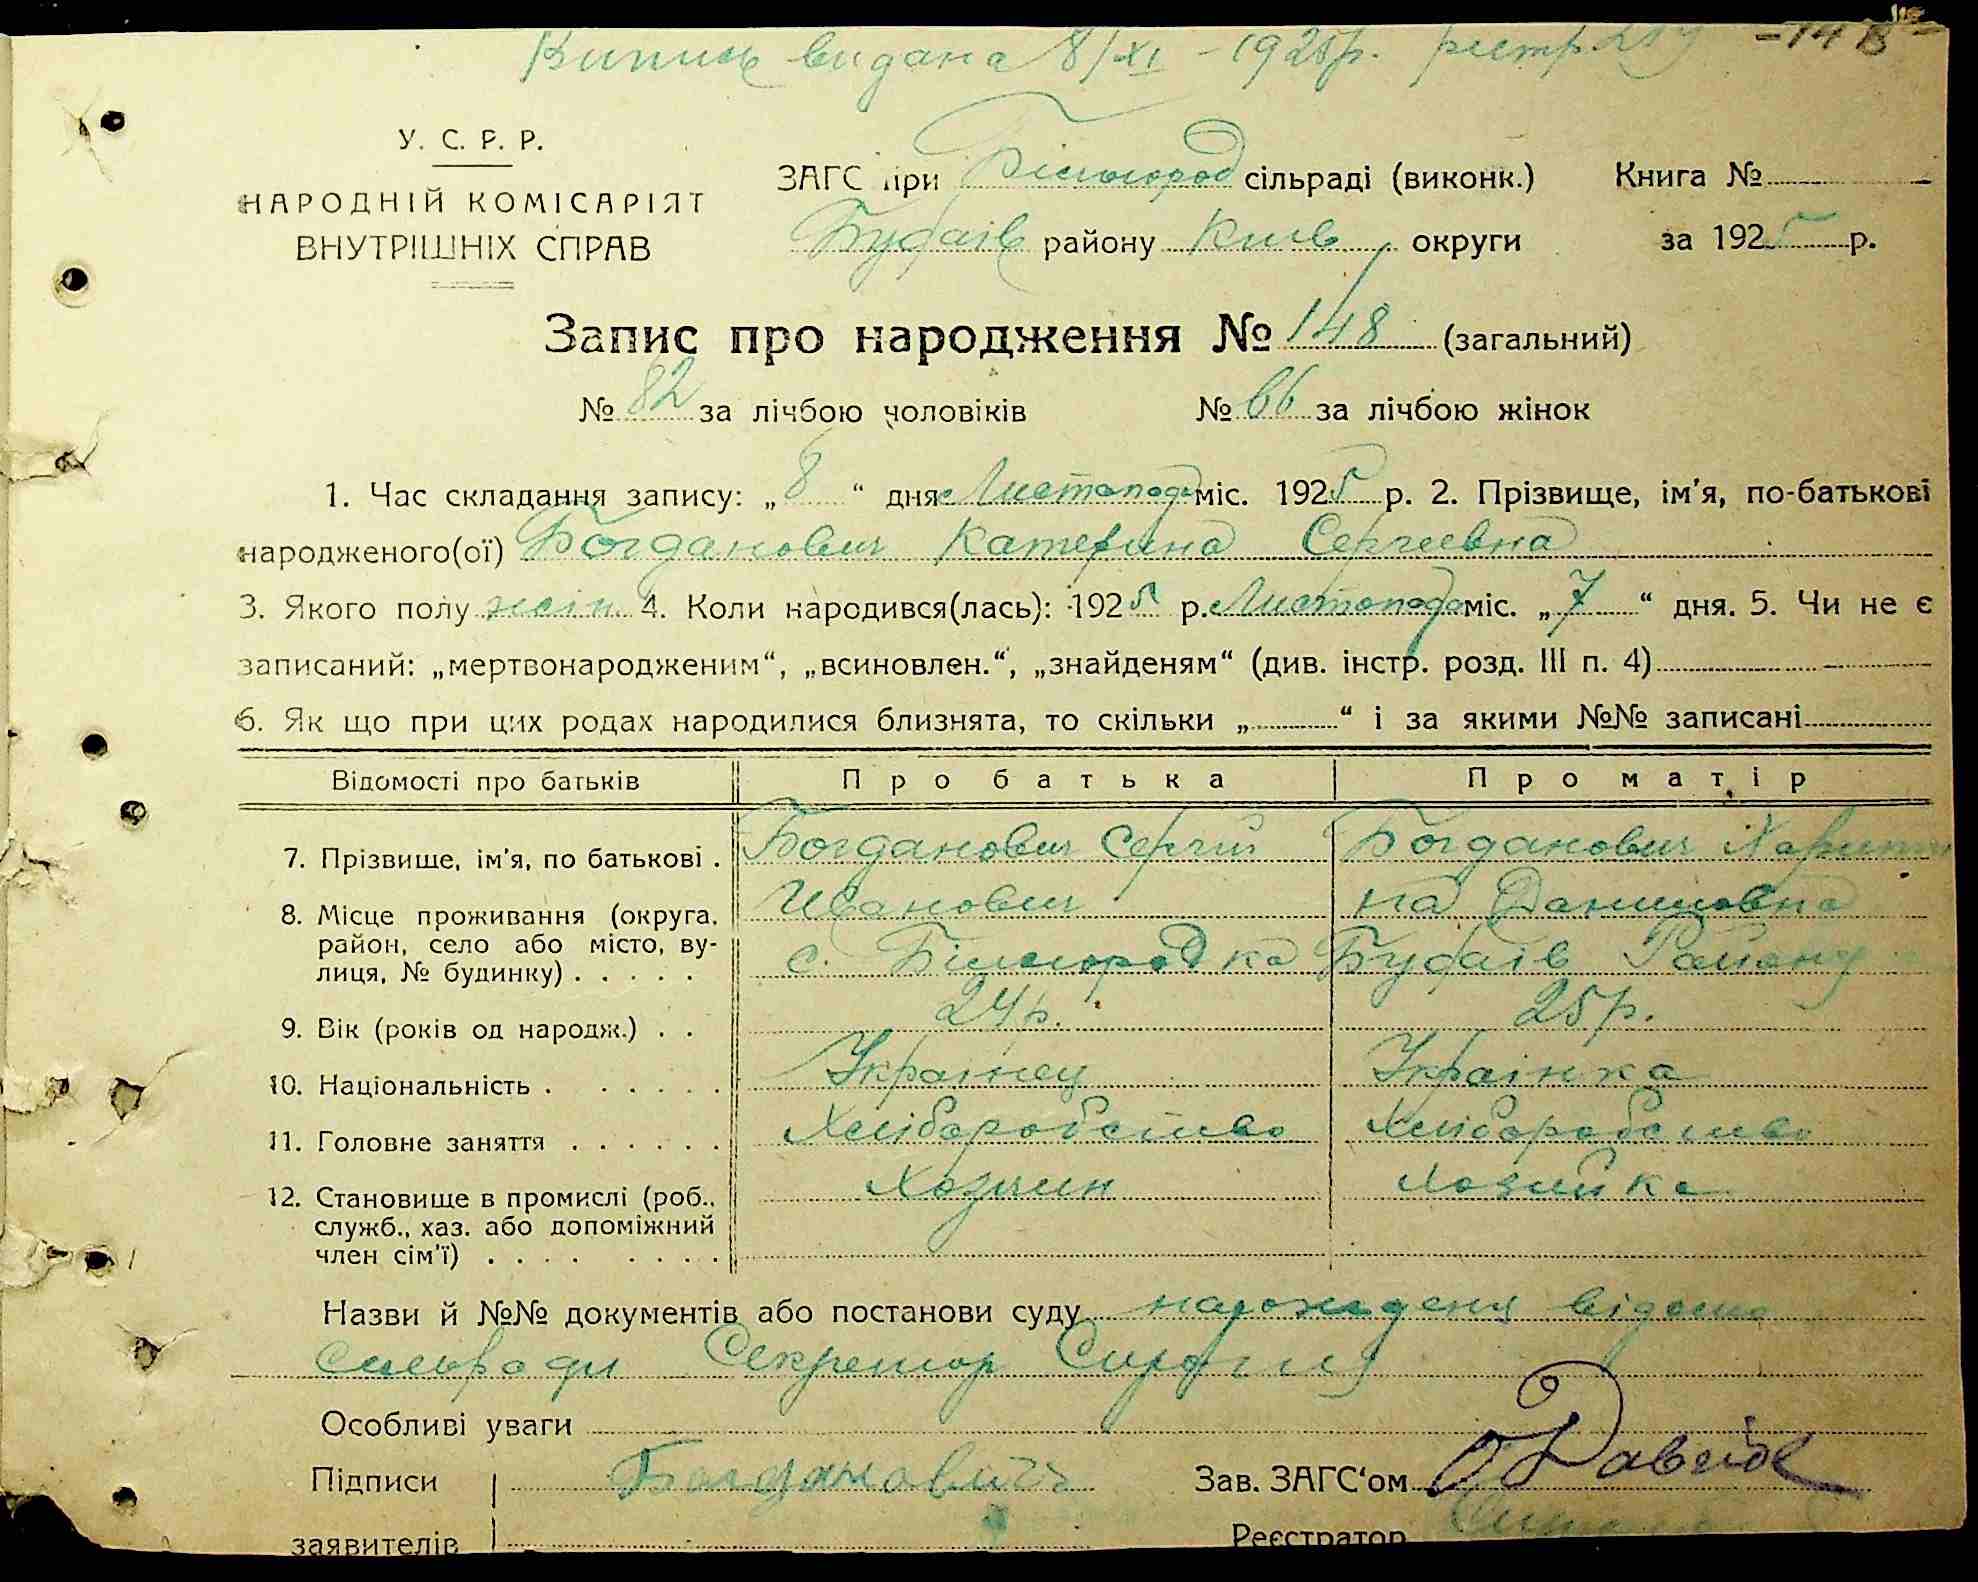 Випись видана 8/XI - 1925р. реєстр. -148-
У. С. Р. Р.
НАРОДНІЙ КОМІСАРІЯТ
ВНУТРІШНІХ СПРАВ
ЗАГС при Білогород сільраді (виконк.) Книга №
Будаїв району Київ округи за 1925 р.
Запис про народження № 148 (загальний)
№ 82 за лічбою чоловіків № 66 за лічбою жінок
1. Час складання запису: „8“ дня Листопада міс. 1925 р. 2. Прізвище, ім'я, по-батькові
народженого(ої) Богданович Катерина Сергеевна
3. Якого полу жін. 4. Коли народився(лась): 1925 р. Листопада міс. „7“ дня. 5. Чи не є
записаний: „мертвонародженим“, „всиновлен.“, „знайденям“ (див. інстр. розд. III п. 4)
6. Як що при цих родах народилися близнята, то скільки „ “ і за якими №№ записані
Відомості про батьків Про батька Про матір
7. Прізвище, ім'я, по батькові . Богданович Сергій Богданович Харити
Иванович на Даниловна
8. Місце проживання (округа,
район, село або місто, ву-
лиця, № будинку) . . . . . с. Білогородка Будаїв Району
9. Вік (років од народж.) . . 24 р. 25 р.
10. Національність . . . . . . Українец Українка
11. Головне заняття . . . . . . Хліборобство Хліборобство
12. Становище в промислі (роб., Хозяин Хозяйка
служб., хаз. або допоміжний
член сім'ї) . . . . . . . .
Назви й №№ документів або постанови суду нарождения відомо
сильради Секретар
Особливі уваги
Підписи Богданович Зав. ЗАГС'ом
заявителів Реєстратор